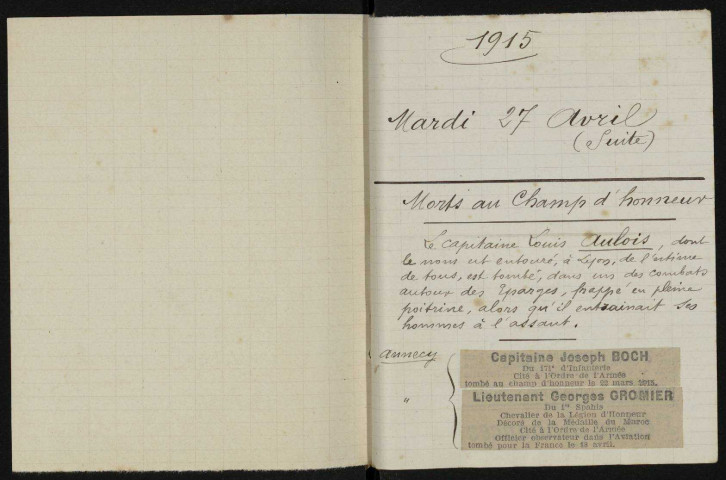 1915
Mardi 27 Avril
(Suite)
Morts au Champ d'honneur
Le capitaine Louis Aulois, dont
le nom est entouré, à Lyon, de l'estime
de tous, est tombé, dans un des combats
autour des Eparges, frappé en pleine
poitrine, alors qu'il entrainait ses
hommes à l'assaut.
Annecy
Capitaine Joseph BOCH
Du 171e d'Infanterie
Cité à l'Ordre de l'Armée
tombé au champ d'honneur le 22 mars 1915.
"
Lieutenant Georges GROMIER
Du 1er Spahis
Chevalier de la Légion d'Honneur
Décoré de la Médaille du Maroc
Cité à l'Ordre de l'Armée
Officier observateur dans l'Aviation
tombé pour la France le 18 avril.